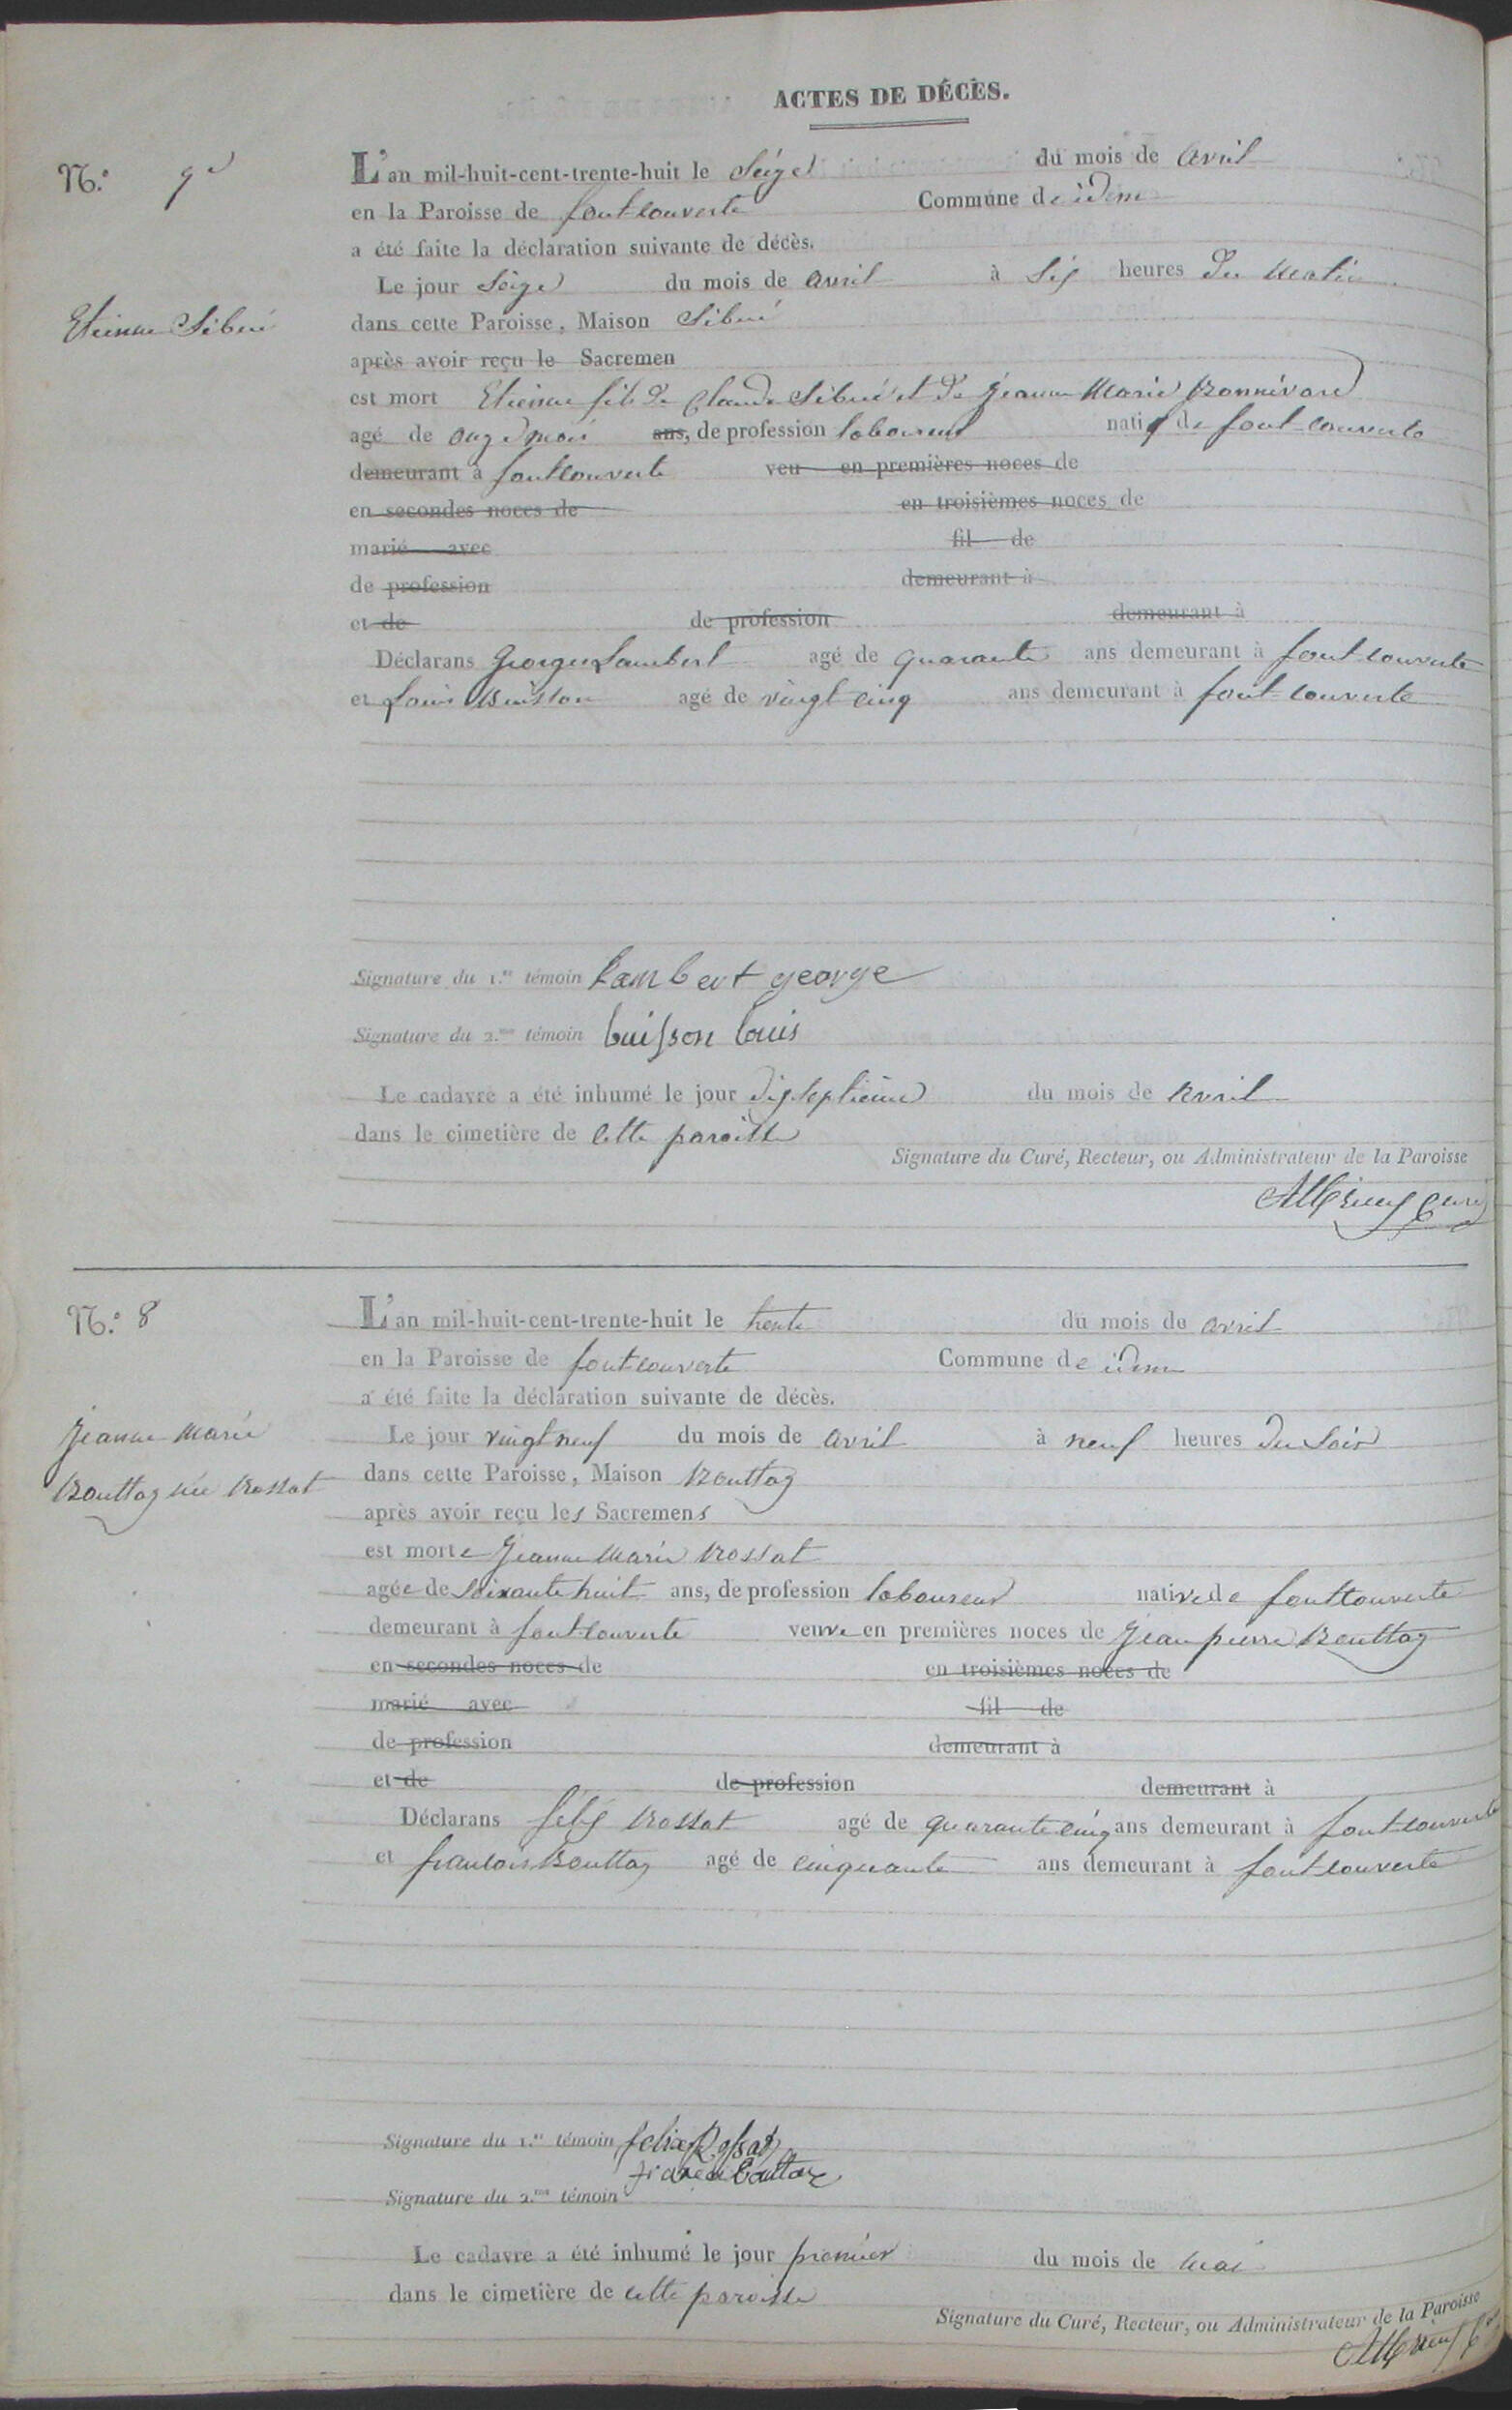 ACTES DE DÉCÈS.
N.º
L'an mil-huit-cent-trente-huit le seize du mois de avril
en la Paroisse de fontcouverte Commune de idem
a été faite la déclaration suivante de décès.
Le jour seize du mois de avril à six heures du matin
Etienne Sibué
dans cette Paroisse, Maison Sibué
après avoir reçu le Sacremen
est mort Etienne fils de Claude Sibué et de Jeanne Marie Bonnivard
agé de onze mois ans, de profession laboureur natif de fontcouverte
demeurant à fontcouverte veu en premières noces de
en secondes noces de en troisièmes noces de
marié avec fil de
de profession demeurant à
et de de profession demeurant à
Déclarans Georges Lambert agé de quarante ans demeurant à fontcouverte
et Louis Buisson agé de vingt cinq ans demeurant à fontcouverte
Signature du 1.er témoin Lambert george
Signature du 2.me témoin buisson louis
Le cadavre a été inhumé le jour dixseptième du mois de avril
dans le cimetière de cette paroisse
Signature du Curé, Recteur, ou Administrateur de la Paroisse
curé
N.º 8
L'an mil-huit-cent-trente-huit le trente du mois de avril
en la Paroisse de fontcouverte Commune de idem
a été faite la déclaration suivante de décès.
Jeanne Marie
Le jour vingt neuf du mois de avril à neuf heures du soir
Bouttaz née Rossat
dans cette Paroisse, Maison Bouttaz
après avoir reçu les Sacremens
est morte Jeanne Marie Rossat
agée de soixante huit ans, de profession laboureur native de fontcouverte
demeurant à fontcouverte veuve en premières noces de Jean pierre Bouttaz
en secondes noces de en troisièmes noces de
marié avec fil de
de profession demeurant à
et de de profession demeurant à
Déclarans félix Rossat agé de quarante cinq ans demeurant à fontcouverte
et françois Bouttaz agé de cinquante ans demeurant à fontcouverte
Signature du 1.er témoin felix Rossat
Signature du 2.me témoin
Le cadavre a été inhumé le jour premier du mois de mai
dans le cimetière de cette paroisse
Signature du Curé, Recteur, ou Administrateur de la Paroisse